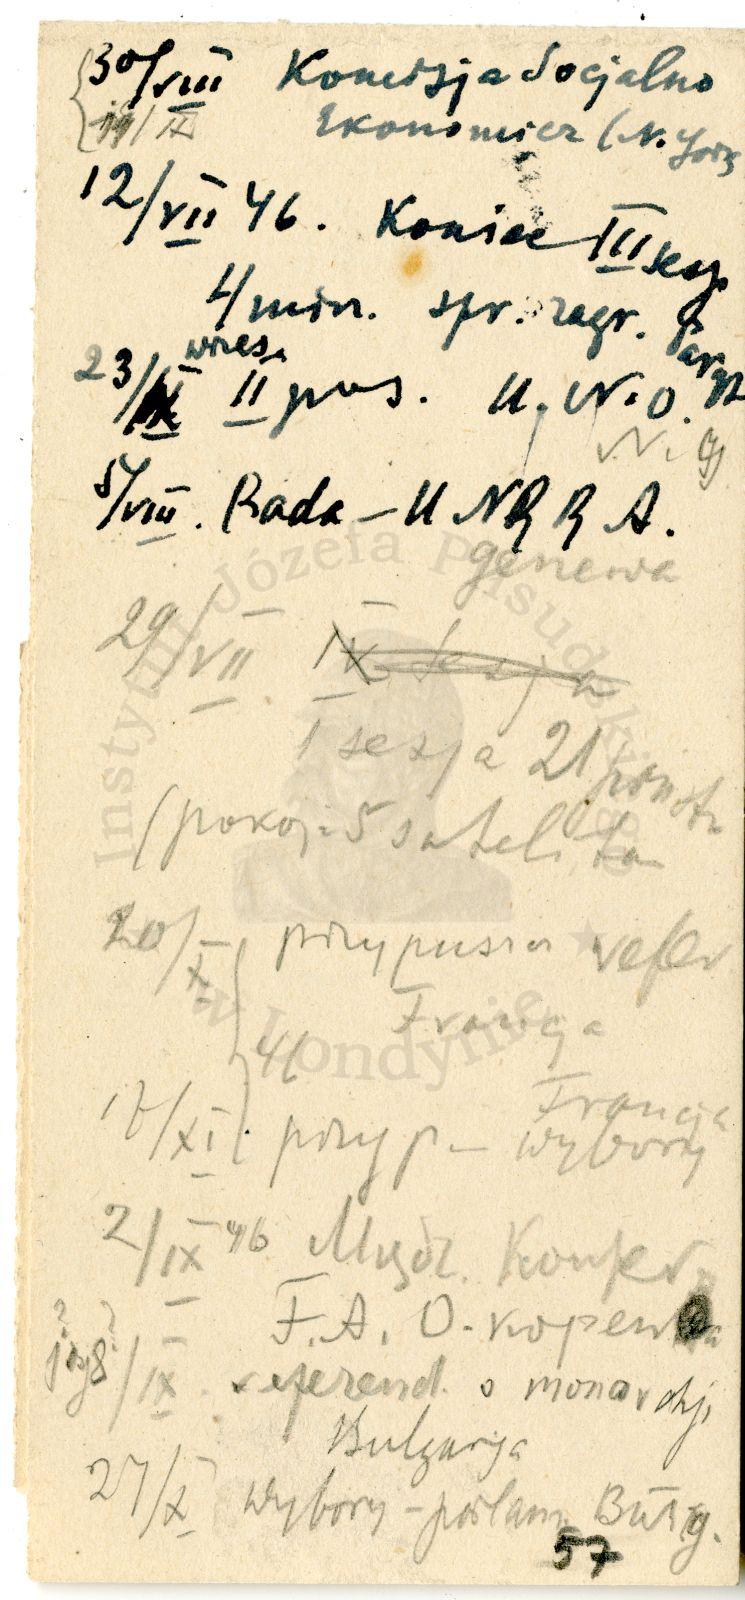 30/VIII Komisja Socjalno
11/IX Ekonomicz (N. York
12/VII 46. Koniec III sesji
4/min. spr. zagr. Paryż
wrześ.
23/IX II pos. U.N.O.
N. Y
5/VIII. Rada - UNRRA.
genewa
29/VII IV sesja
1 sesja 21 państ
(pokoj. 5 satelita
20/X przypuszcz refer
Francja
46
Francja
17/XI przyp - wybory
2/IX 46 Międz. Konfer.
F.A.O. Kopen
? ?
8/IX referend. o monarchji
Bulgarja
27/X wybory - parlam. Bułg.
57
Instytut Józefa Piłsudskiego
w Londynie